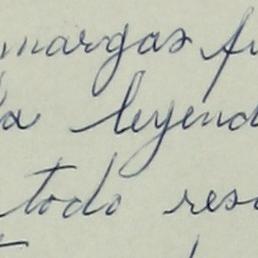 margas fu
la leyend
todo res